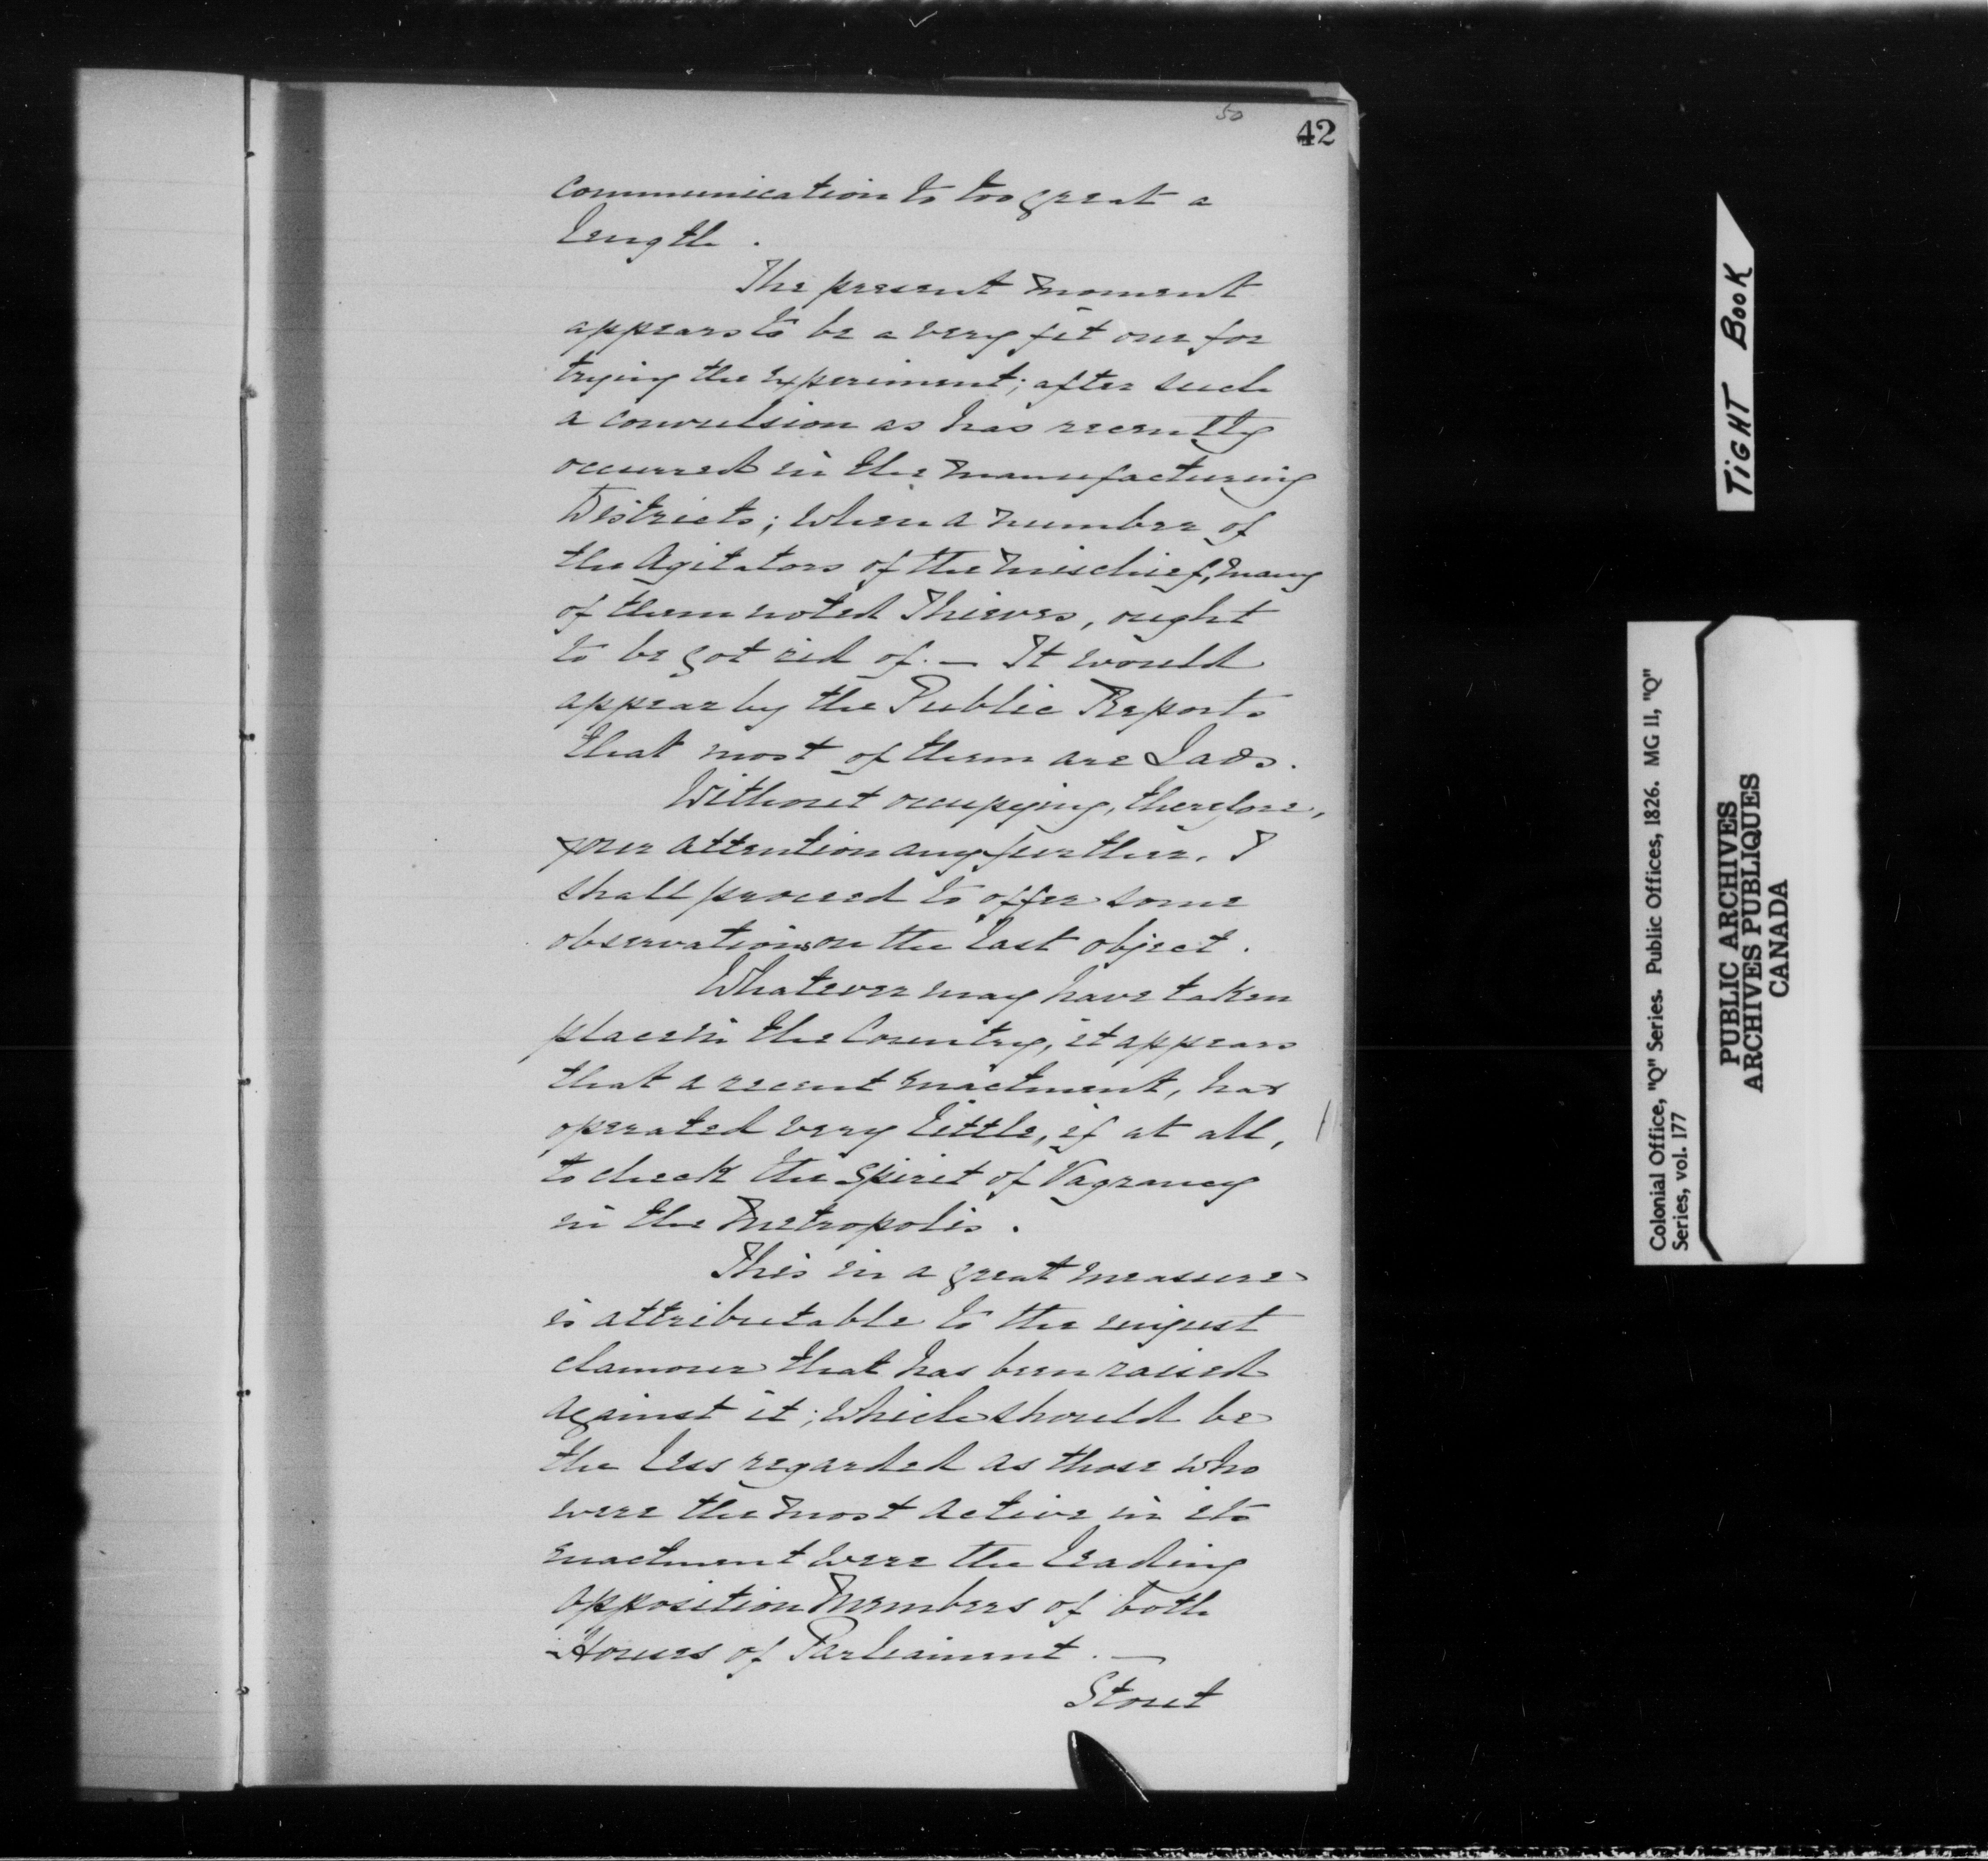 50
42
communication to too great a
length.
The present moment
appears to be a very fit one for
trying the experiment; after such
a convulsion as has recently
occurred in the manufacturing
Districts; when a number of
the Agitators of the mischief, many
of them noted Thieves, ought
to be got rid of. — It would
appear by the Public Reports
that most of them are Lads.
Without occupying, therefore,
your attention any further, I
shall proceed to offer some
observations on the last object.
Whatever may have taken
place in the Country, it appears
that a recent enactment, has
operated very little, if at all,
to check the spirit of Vagrancy
in the Metropolis.
This in a great measure
is attributable to the unjust
clamour that has been raised
against it; which should be
the less regarded as those who
were the most active in its
enactment were the leading
opposition Members of both
Houses of Parliament. —
Stout
TIGHT BOOK
Colonial Office, "Q" Series. Public Offices, 1826. MG 11, "Q"
Series, vol. 177
PUBLIC ARCHIVES
ARCHIVES PUBLIQUES
CANADA